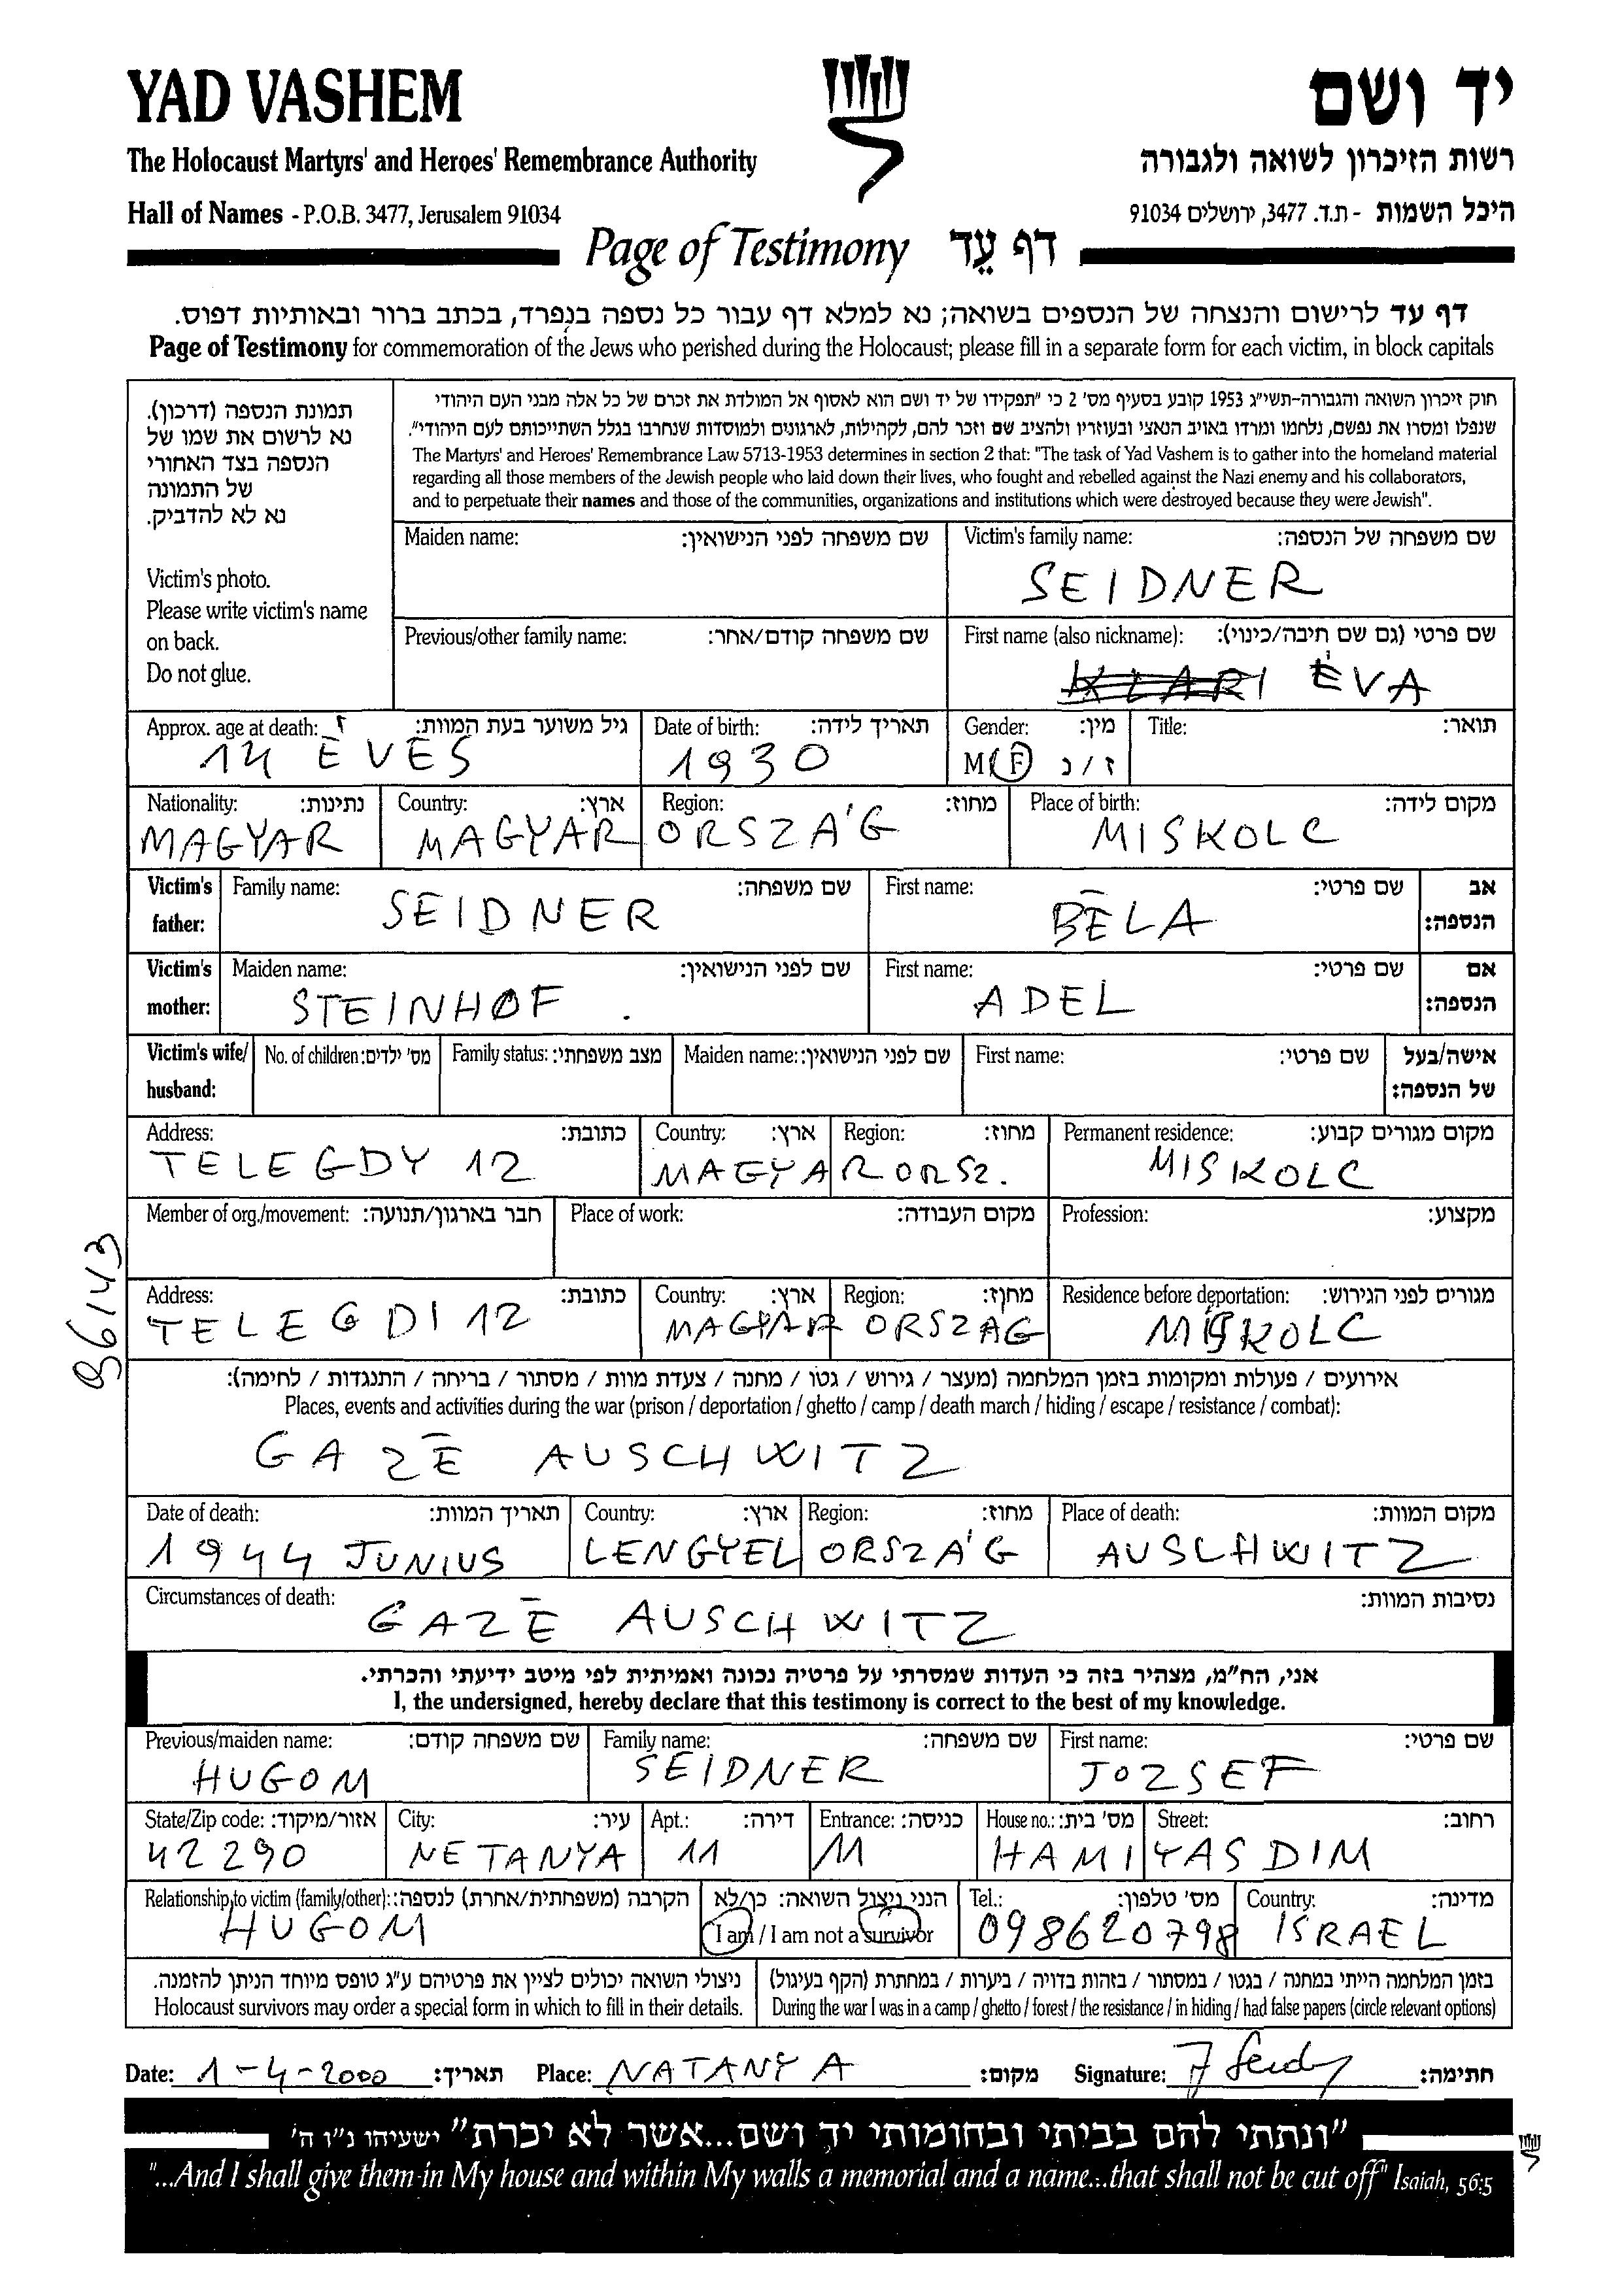 YAD VASHEM
יד ושם
The Holocaust Martyrs' and Heroes' Remembrance Authority
רשות הזיכרון לשואה ולגבורה
Hall of Names - P.O.B. 3477, Jerusalem 91034
היכל השמות - ת.ד. 3477, ירושלים 91034
Page of Testimony דף עֵד
דף עד לרישום והנצחה של הנספים בשואה; נא למלא דף עבור כל נספה בנפרד, בכתב ברור ובאותיות דפוס.
Page of Testimony for commemoration of the Jews who perished during the Holocaust; please fill in a separate form for each victim, in block capitals
תמונת הנספה (דרכון).
נא לרשום את שמו של
הנספה בצד האחורי
של התמונה
נא לא להדביק.
Victim's photo.
Please write victim's name
on back.
Do not glue.
חוק זיכרון השואה והגבורה-תשי"ג 1953 קובע בסעיף מס' 2 כי "תפקידו של יד ושם הוא לאסוף אל המולדת את זכרם של כל אלה מבני העם היהודי
שנפלו ומסרו את נפשם, נלחמו ומרדו באויב הנאצי ובעוזריו ולהציב שם וזכר להם, לקהילות, לארגונים ולמוסדות שנחרבו בגלל השתייכותם לעם היהודי".
The Martyrs' and Heroes' Remembrance Law 5713-1953 determines in section 2 that: "The task of Yad Vashem is to gather into the homeland material
regarding all those members of the Jewish people who laid down their lives, who fought and rebelled against the Nazi enemy and his collaborators,
and to perpetuate their names and those of the communities, organizations and institutions which were destroyed because they were Jewish".
Maiden name: שם משפחה לפני הנישואין:
Victim's family name: שם משפחה של הנספה:
SEIDNER
Previous/other family name: שם משפחה קודם/אחר:
First name (also nickname): שם פרטי (גם שם חיבה/כינוי):
KLARI ÉVA
Approx. age at death: גיל משוער בעת המוות:
14 ÉVES
Date of birth: תאריך לידה:
1930
Gender: מין:
M/F ז/נ
Title: תואר:
Nationality: נתינות:
MAGYAR
Country: ארץ: Region: מחוז:
MAGYAR ORSZÁG
Place of birth: מקום לידה:
MISKOLC
Victim's father: Family name: שם משפחה: First name: שם פרטי: אב הנספה:
SEIDNER BÉLA
Victim's mother: Maiden name: שם לפני הנישואין: First name: שם פרטי: אם הנספה:
STEINHOF ADEL
Victim's wife/husband: No. of children: מס' ילדים: Family status: מצב משפחתי: Maiden name: שם לפני הנישואין: First name: שם פרטי: אישה/בעל של הנספה:
Address: כתובת: Country: ארץ: Region: מחוז: Permanent residence: מקום מגורים קבוע:
TELEGDY 12 MAGYARORSZ. MISKOLC
Member of org./movement: חבר בארגון/תנועה: Place of work: מקום העבודה: Profession: מקצוע:
Address: כתובת: Country: ארץ: Region: מחוז: Residence before deportation: מגורים לפני הגירוש:
TELEGDI 12 MAGYAR ORSZAG MISKOLC
אירועים / פעולות ומקומות בזמן המלחמה (מעצר / גירוש / גטו / מחנה / צעדת מוות / מסתור / בריחה / התנגדות / לחימה):
Places, events and activities during the war (prison / deportation / ghetto / camp / death march / hiding / escape / resistance / combat):
GAZÉ AUSCHWITZ
Date of death: תאריך המוות: Country: ארץ: Region: מחוז: Place of death: מקום המוות:
1944 JUNIUS LENGYEL ORSZÁG AUSCHWITZ
Circumstances of death: נסיבות המוות:
GAZÉ AUSCHWITZ
אני, הח"מ, מצהיר בזה כי העדות שמסרתי על פרטיה נכונה ואמיתית לפי מיטב ידיעתי והכרתי.
I, the undersigned, hereby declare that this testimony is correct to the best of my knowledge.
Previous/maiden name: שם משפחה קודם: Family name: שם משפחה: First name: שם פרטי:
HUGOM SEIDNER JOZSEF
State/Zip code: אזור/מיקוד: City: עיר: Apt.: דירה: Entrance: כניסה: House no.: מס' בית: Street: רחוב:
42290 NETANYA 11 11 HAMIYASDIM
Relationship to victim (family/other): הקרבה (משפחתית/אחרת) לנספה: הנני ניצול השואה: כן/לא Tel.: מס' טלפון: Country: מדינה:
HUGOM I am / I am not a survivor 098620798 ISRAEL
ניצולי השואה יכולים לציין את פרטיהם ע"ג טופס מיוחד הניתן להזמנה.
Holocaust survivors may order a special form in which to fill in their details.
בזמן המלחמה הייתי במחנה / בגטו / במסתור / בזהות בדויה / ביערות / במחתרת (הקף בעיגול)
During the war I was in a camp / ghetto / forest / the resistance / in hiding / had false papers (circle relevant options)
Date: 1-4-2000 תאריך: Place: NATANYA מקום: Signature: חתימה:
"ונתתי להם בביתי ובחומותי יד ושם...אשר לא יכרת" ישעיהו נ"ו ה'
"...And I shall give them in My house and within My walls a memorial and a name...that shall not be cut off" Isaiah, 56:5